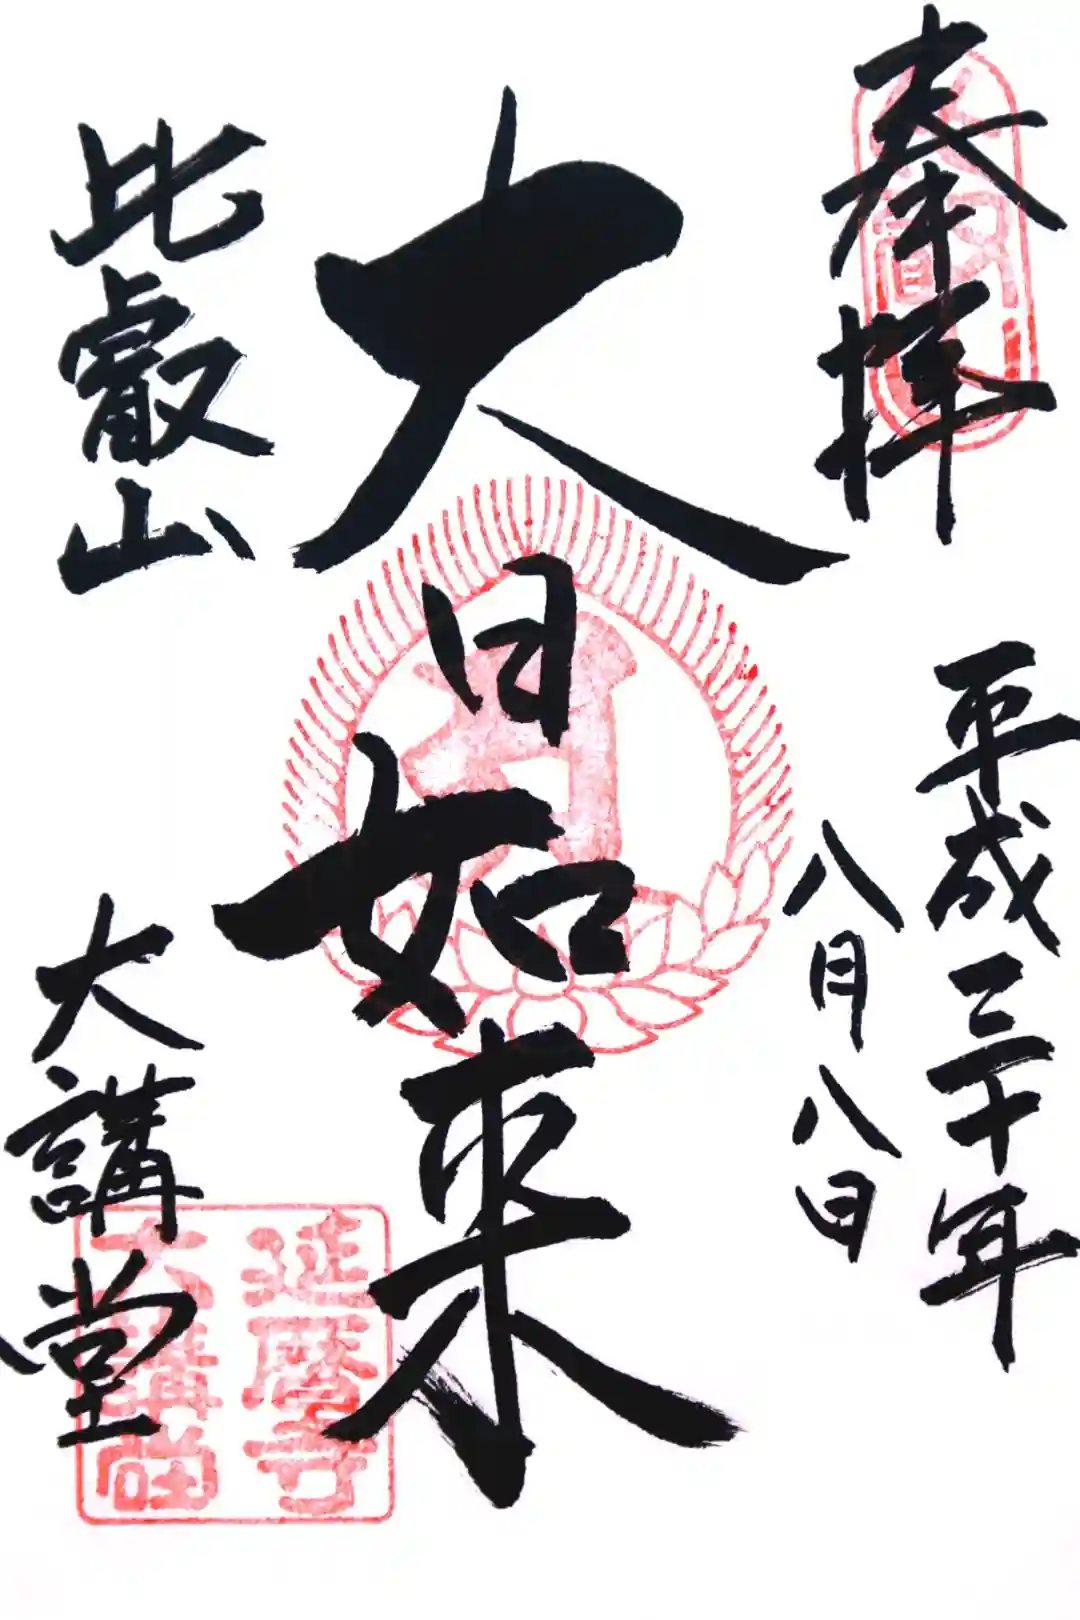 奉拝
平成三十年
八月八日
大日如来
比叡山
大講堂
延暦寺
大講堂